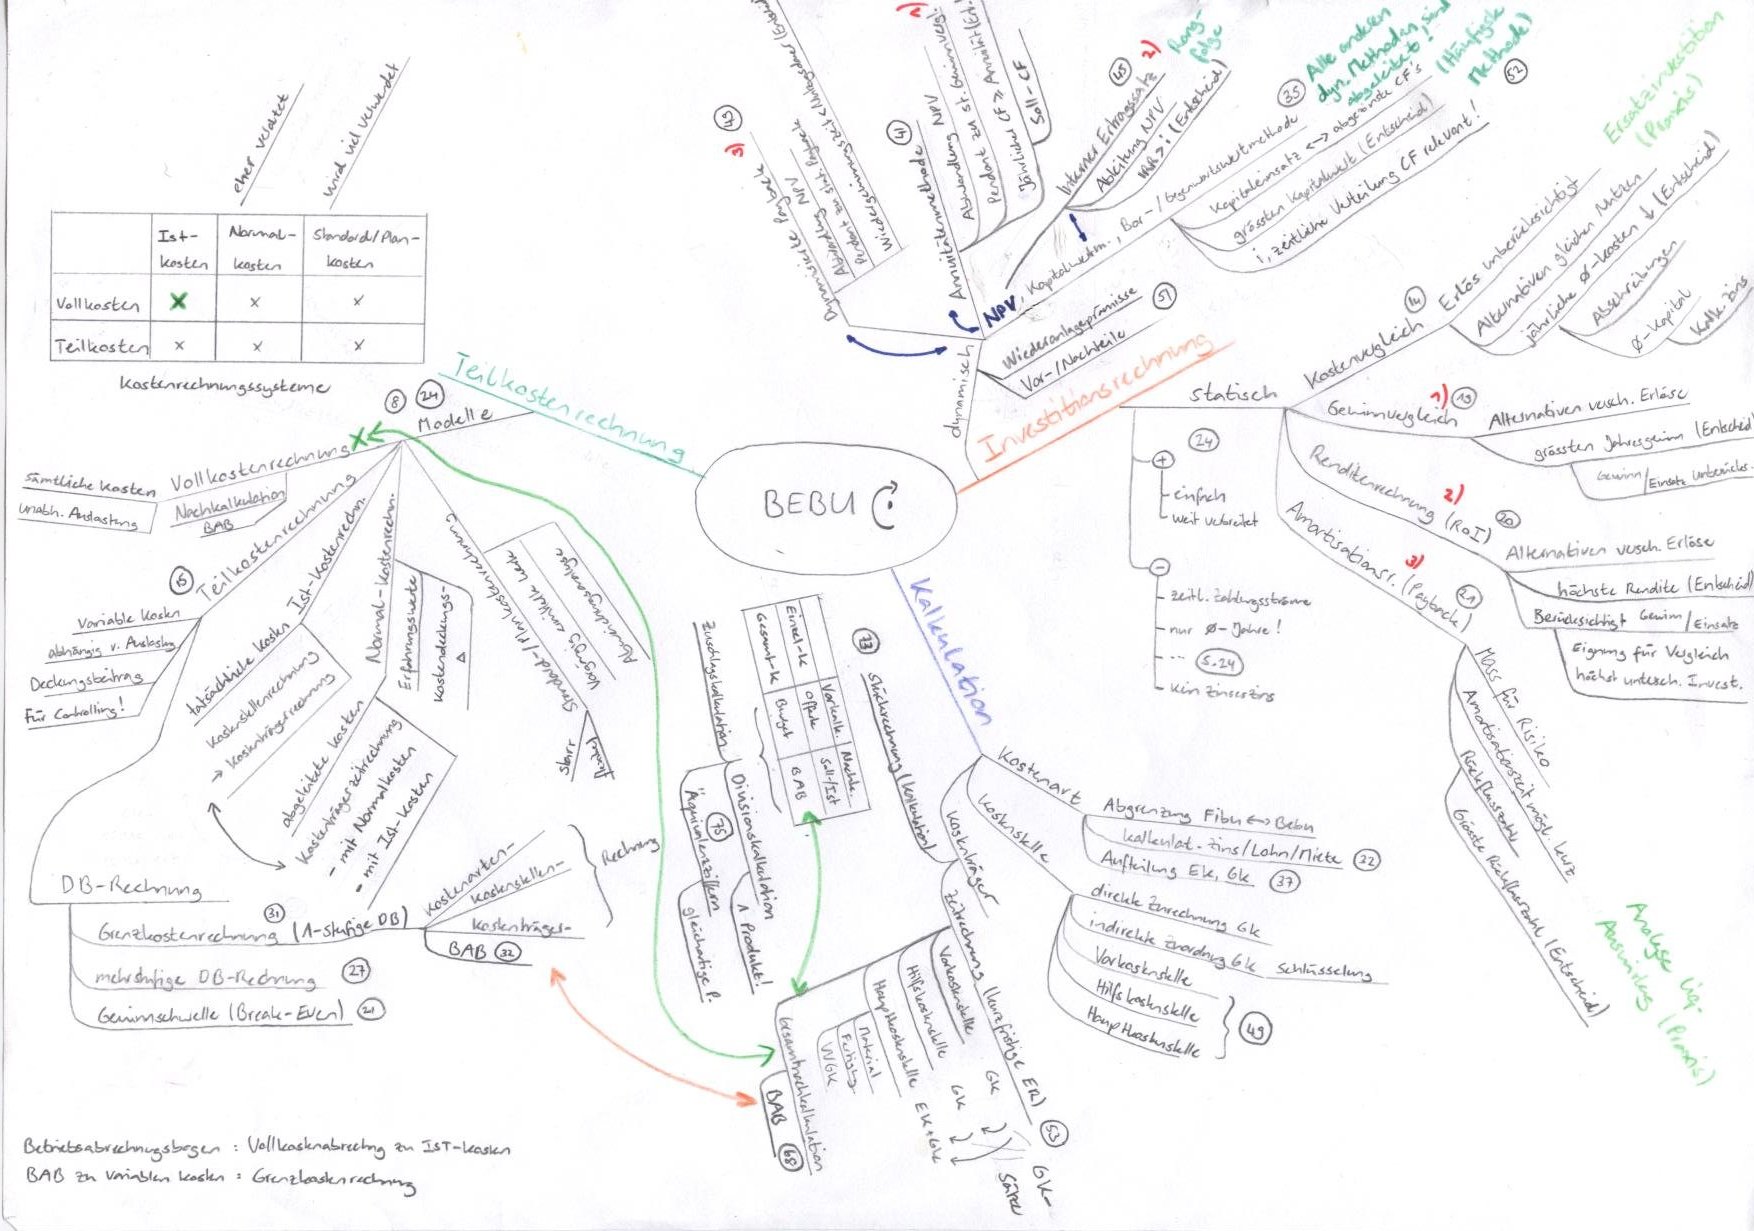 BEBU
Teilkostenrechnung
eher veraltet
wird viel verwendet
Ist-kosten
Normal-kosten
Standard/Plan-kosten
Vollkosten x x x
Teilkosten x x x
Kostenrechnungssysteme
8 24
Modelle
Vollkostenrechnung
Sämtliche Kosten
unabh. Auslastung
Nachkalkulation
BAB
15
Teilkostenrechnung
Variable Kosten
abhängig v. Auslastung
Deckungsbeitrag
Für Controlling!
Ist-Kostenrechn.
tatsächliche Kosten
Kostenstellenrechnung
→ Kostenträgerrechnung
Normal-Kostenrechn.
Erfahrungswerte
Kostendeckungs-
Δ
abgeleitete Kosten
Kostenträgerzeitrechnung
- mit Normalkosten
- mit Ist-Kosten
Standard-/Plankostenrechnung
Abweichungsanalyse
starr
flexibel
DB-Rechnung
31
Grenzkostenrechnung (1-stufige DB)
mehrstufige DB-Rechnung 27
Gewinnschwelle (Break-Even) 21
Kostenarten-
Kostenstellen-
Kostenträger-
Rechnung
BAB 32
Betriebsabrechnungsbogen : Vollkostenabrechng zu IST-Kosten
BAB zu variablen Kosten : Grenzkostenrechnung
Investitionsrechnung
dynamisch
43
3)
Dynamische Payback
Abwandlung NPV
Pendant zu stat. Payback
41
1)
Annuitätenmethode
Abwandlung NPV/
Pendant zu st. Gewinnvergl.
Soll-CF
45
2)
Rang-
folge
Interner Ertragssatz
Ableitung NPV
IRR > i (Entscheid)
NPV, Kapitalwertm., Bar-/Gegenwartswertmethode
35
Kapitaleinsatz <-> abgezinste CF's
grössten Kapitalwert (Entscheid)
i, zeitliche Verteilung CF relevant!
Alle anderen
dyn. Methoden sind
abgeleitet!
(Häufigste
Methode)
52
Wiederanlageprämisse
Vor-/Nachteile
51
statisch
24
+
einfach
weit verbreitet
-
zeitl. Zahlungsströme
nur Ø-Jahre!
... S.24
kein Zinseszins
Kostenvergleich
14
Erlös unberücksichtigt
Alternativen gleichen Nutzen
jährliche Ø-kosten ↓ (Entscheid)
Abschreibungen
Ø-Kapital
Kalk. Zins
Ersatzinvestition
(Praxis)
Gewinnvergleich
1) 19
Alternativen versch. Erlöse
grössten Jahresgewinn (Entscheid
Gewinn/Einsatz unberücks.
Renditenrechnung (RoI)
2) 20
Alternativen versch. Erlöse
höchste Rendite (Entscheid)
Berücksichtigt Gewinn/Einsatz
Eignung für Vergleich
höchst untersch. Invest.
Amortisationsr. (Payback)
3) 21
Mass für Risiko
Amortisationszeit mögl. kurz
Rückflusszahl
Grösste Rückflusszahl (Entscheid)
Analyse Liq-
Auswirkung (Praxis)
Kalkulation
Kostenart
Abgrenzung Fibu <-> Bebu
kalkulat. Zins/Lohn/Miete 32
Aufteilung EK, GK 37
Kostenstelle
direkte Zurechnung GK
indirekte Zuordnung GK Schlüsselung
Vorkostenstelle
Hilfskostenstelle
Hauptkostenstelle
49
Kostenträger
73
Stückrechnung (Kalkulation)
Vorkalk. Nachk.
Einzel-k Offerte Soll-/Ist
Gesamt-k Budget BAB
Zuschlagskalkulation
Divisionskalkulation
1 Produkt!
76
"Äquivalenzziffern
gleichartige P.
Zeitrechnung (kurzfristige ER)
53
Vorkostenstelle GK
Hilfskostenstelle GK
Hauptkostenstelle EK+GK
GK-
Sätze
Material
Fertig.
VVGK
Gesamtnachkalkulation
BAB 68